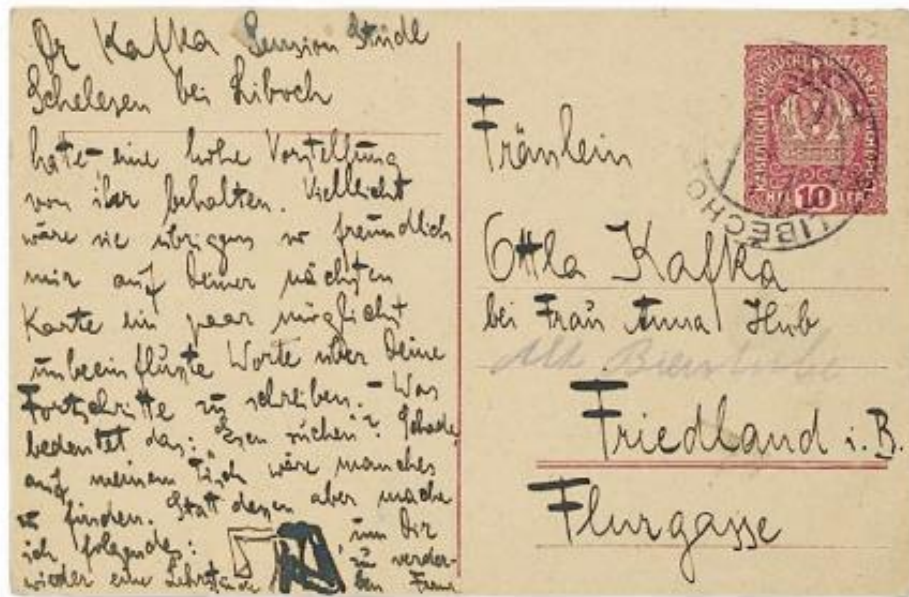 Dr Kafka Pension Stüdl
Schelesen bei Liboch
hatte eine hohe Vorstellung
von ihr behalten. Vielleicht
wäre sie übrigens so freundlich
mir auf Deiner nächsten
Karte ein paar möglichst
unbeeinflusste Worte über Deine
Fortschritte zu schreiben. - Was
bedeutet das: "Essen suchen"? Schade
auf meinem Tisch wäre manches
zu finden. Statt dessen aber mache
ich folgendes: um Dir
wieder eine Lehrstunde zu verder-
ben Frau
Fräulein
Ottla Kafka
bei Frau Anna Hub
Friedland i. B.
Flurgasse
KAISERLICHE KÖNIGLICHE ÖSTERREICHISCHE POST
10
LIBECHO